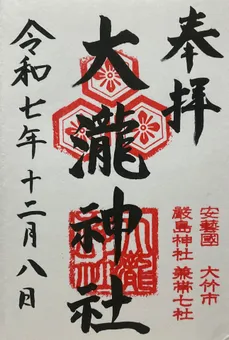 奉拝
安藝國 大竹市
嚴島神社 兼帯七社
大瀧神社
令和七年十二月八日